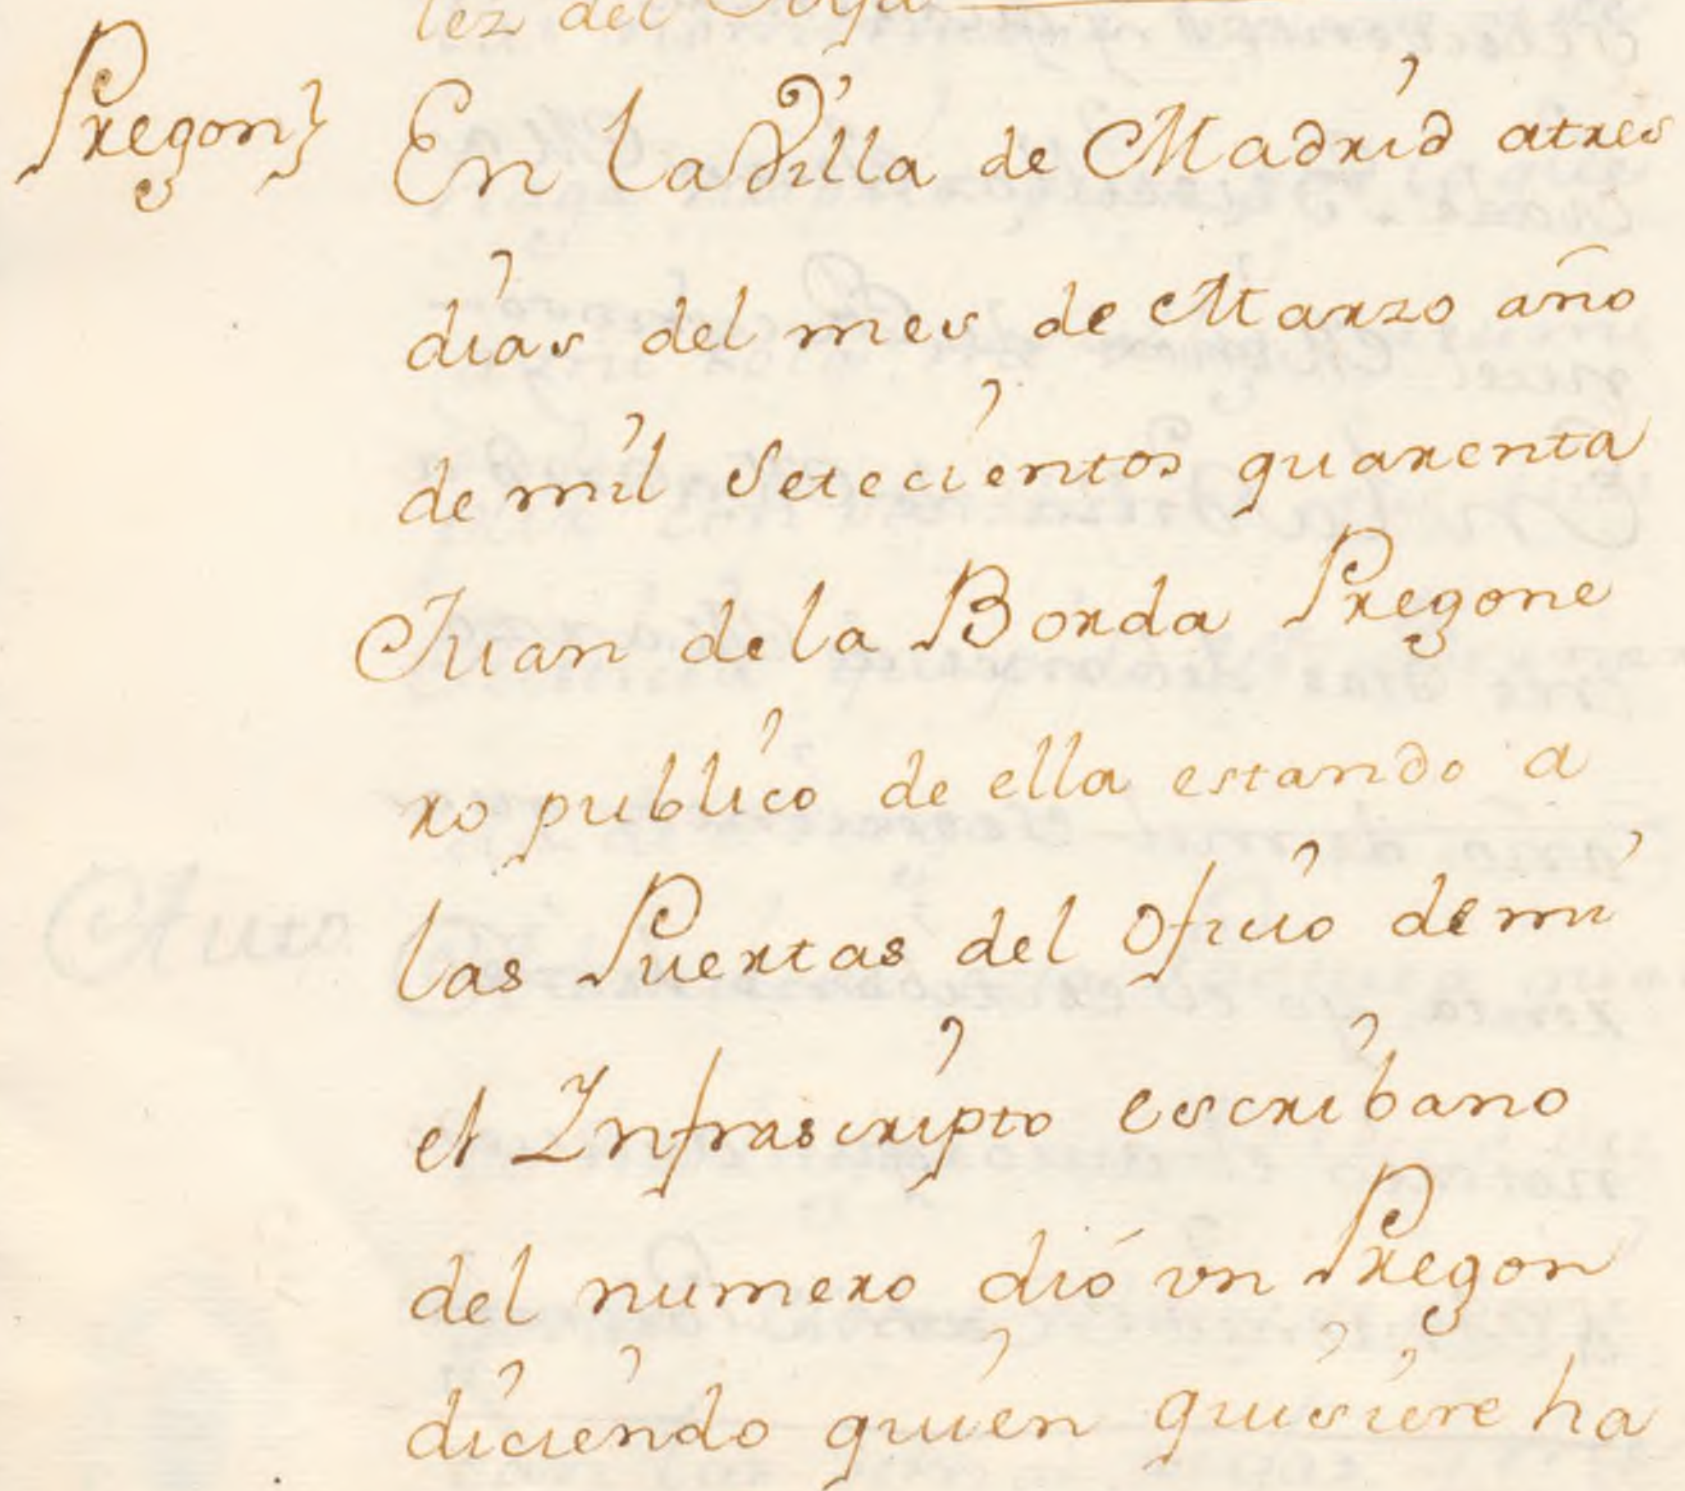 lez del
Pregon}
En la Villa de Madrid atres
dias del mes de Marzo año
de mil Setecientos quarenta
Juan de la Borda Pregone
ro publico de ella estando a
las Puertas del Oficio de mi
el Infrascripto escribano
del numero dió vn Pregon
diciendo quien quisiere ha